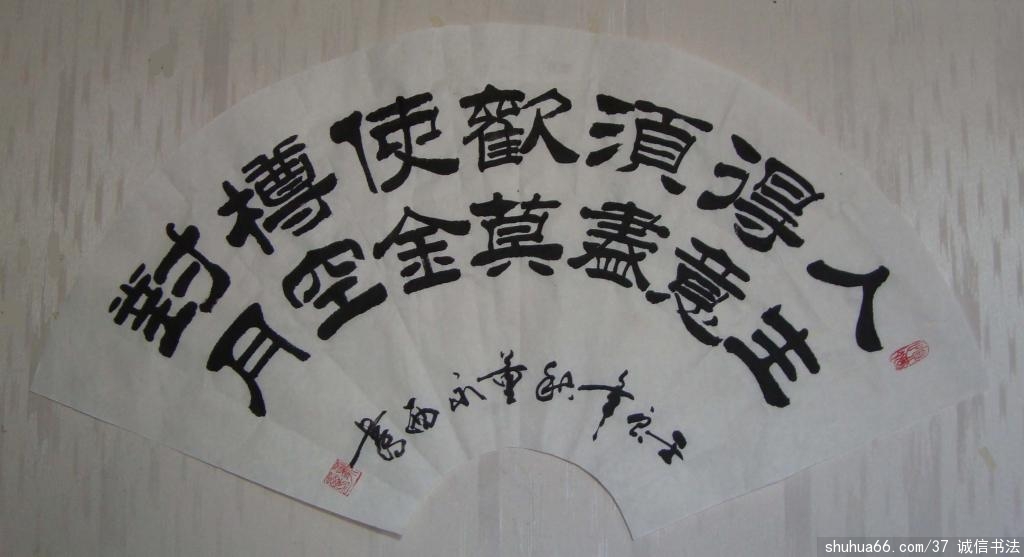 人生
得意
須盡
歡莫
使金
樽空
對月
年秋董永西書
shuhua66.com/37 诚信书法